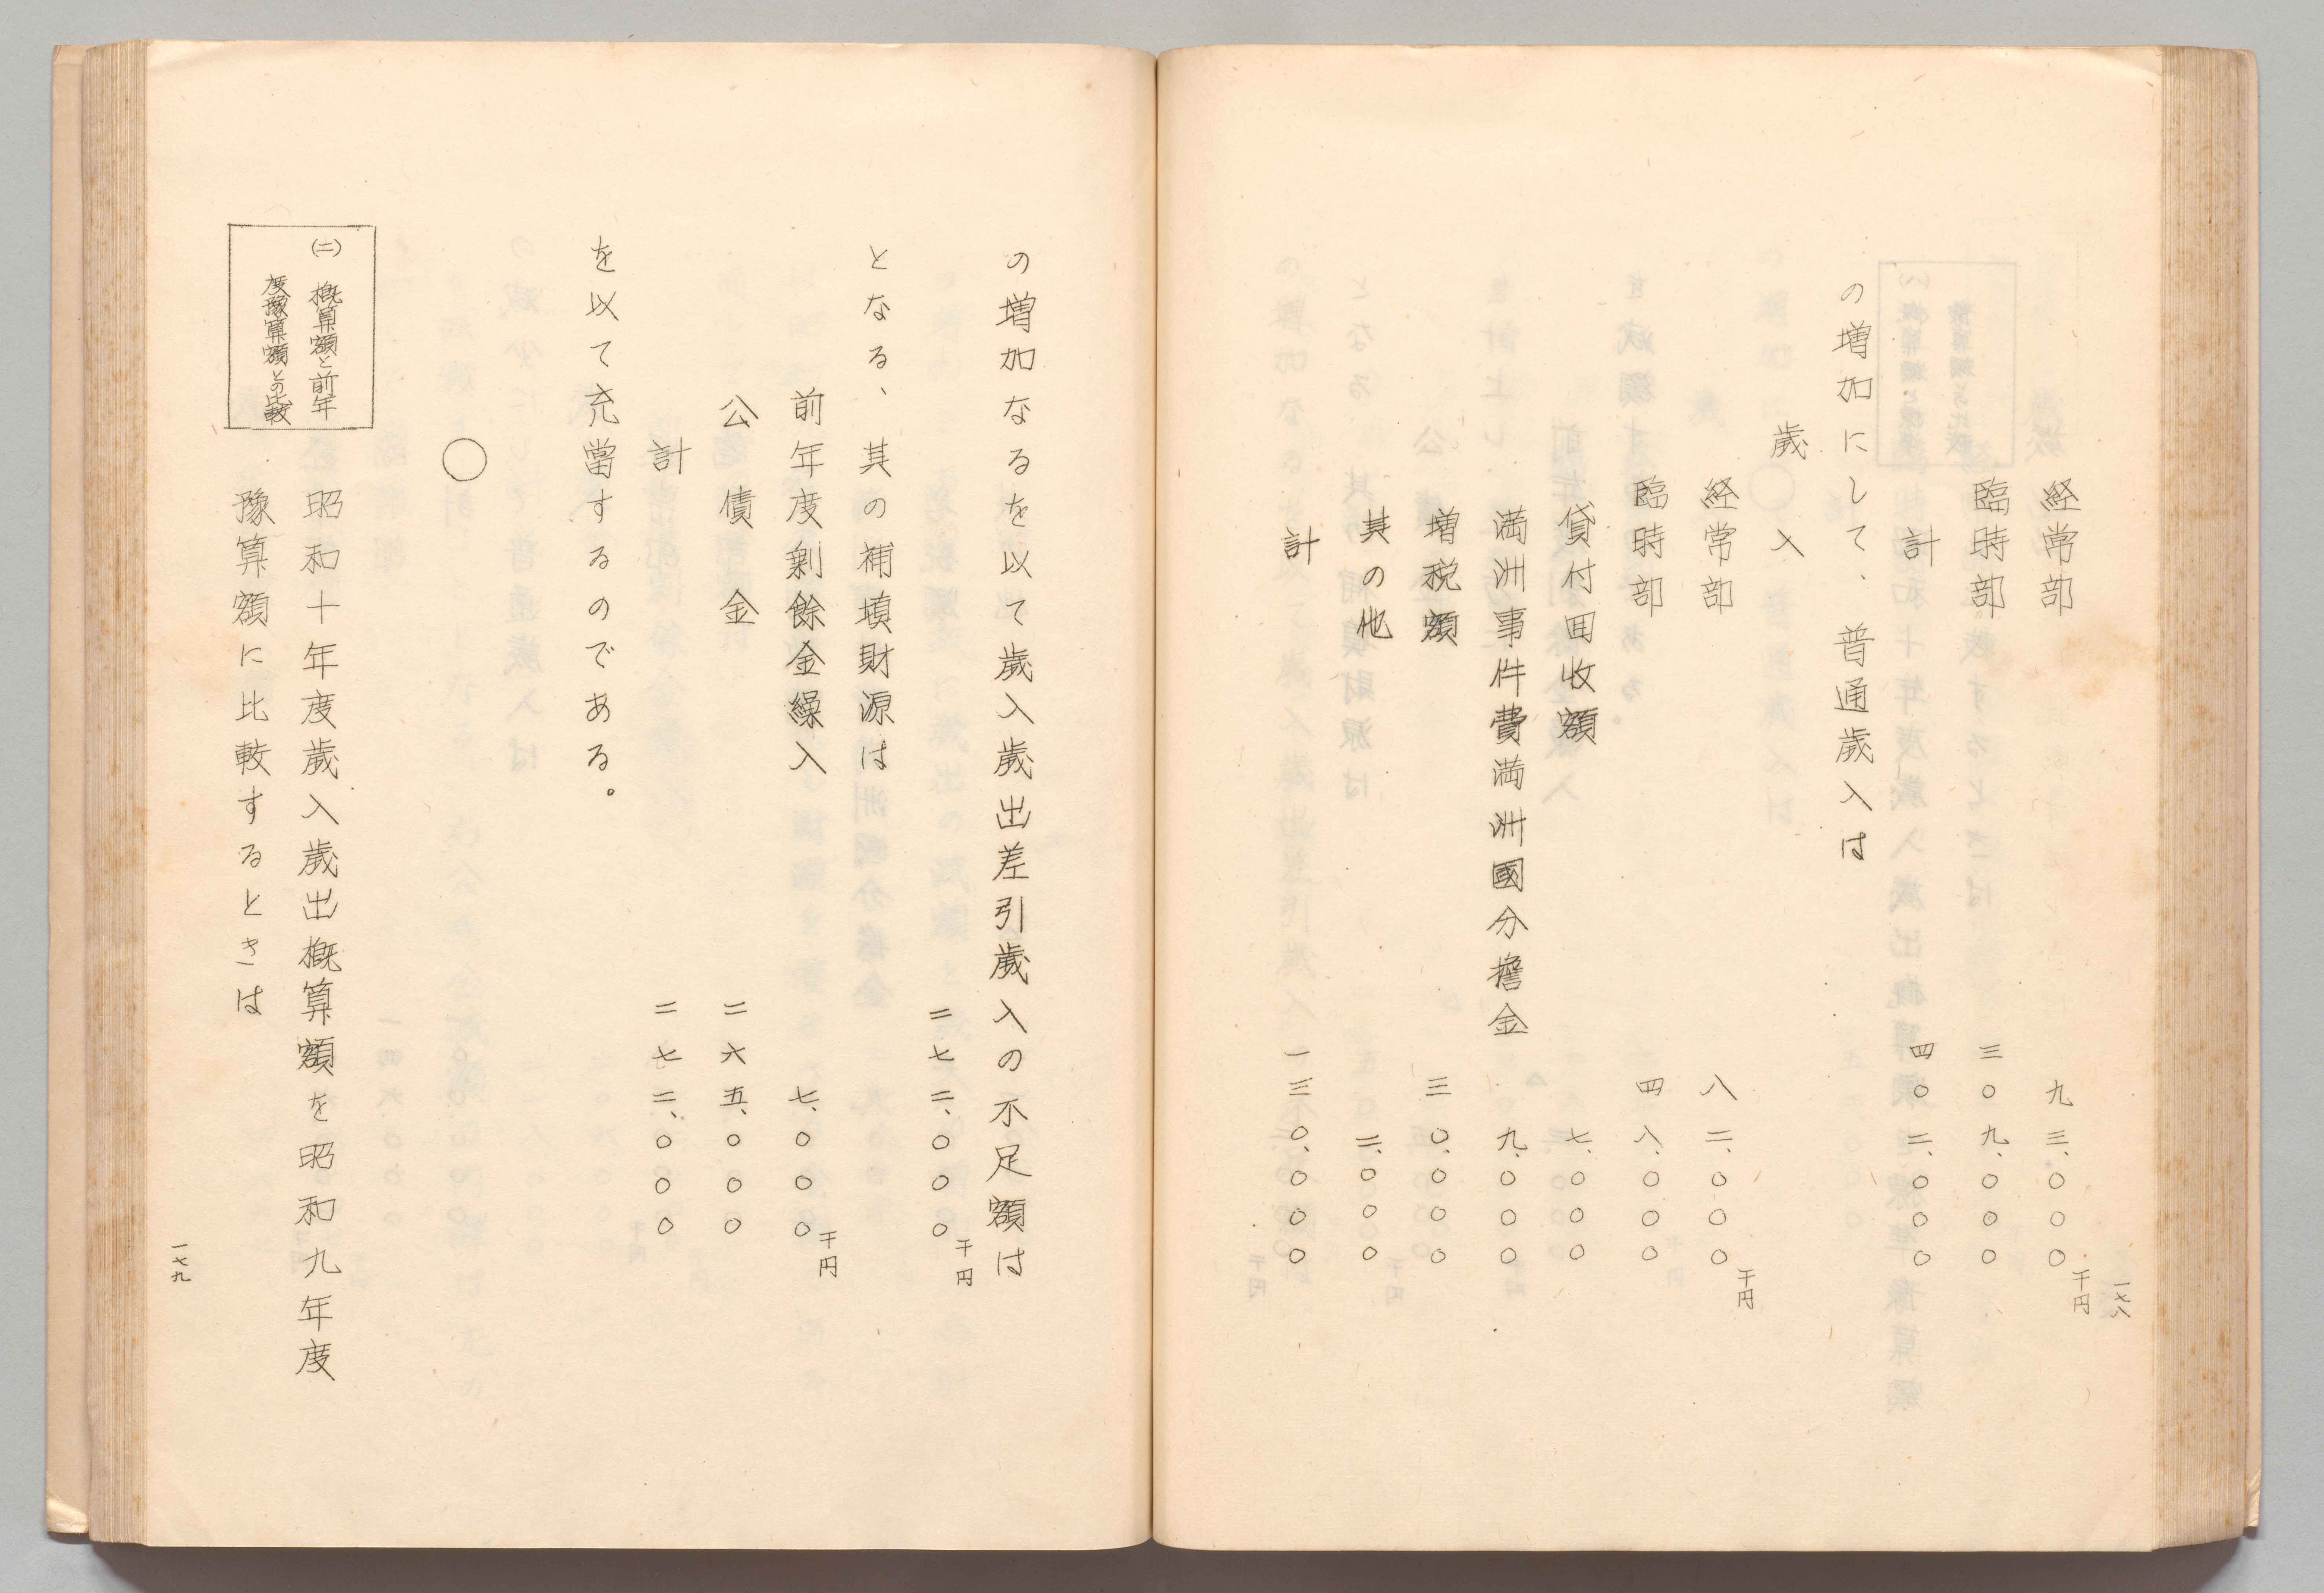 一七八
経常部 九三、〇〇〇千円
臨時部 三〇九、〇〇〇
計 四〇二、〇〇〇
の増加にして、普通歲入は
歲入
経常部 八二、〇〇〇千円
臨時部 四八、〇〇〇
貸付回收額 七、〇〇〇
満洲事件費満洲國分擔金 九、〇〇〇
増税額 三〇、〇〇〇
其の他 二、〇〇〇
計 一三〇、〇〇〇
の増加なるを以て歲入歲出差引歲入の不足額は
二七二、〇〇〇千円
となる、其の補塡財源は
前年度剰餘金繰入 七、〇〇〇千円
公債金 二六五、〇〇〇
計 二七二、〇〇〇
を以て充當するのである。
〇
(二) 概算額と前年
度豫算額との比較
昭和十年度歲入歲出概算額を昭和九年度
豫算額に比較するときは
一七九